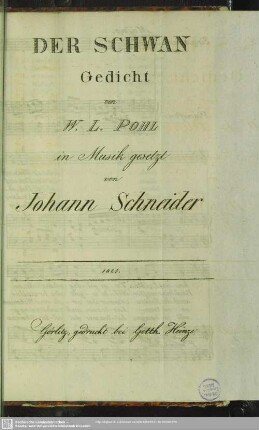 DER SCHWAN
Gedicht
von
W. L. POHL
in Musik gesetzt
von
Johann Schneider
Görlitz, gedruckt bei Gotth. Heinze